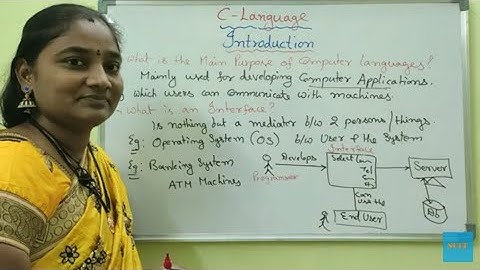 C-Language
Introduction
What is the Main Purpose of Computer languages?
Mainly used for developing Computer Applications.
Which users can communicate with machines.
What is an Interface?
Is nothing but a mediator b/w 2 persons/things.
Eg: Operating System (OS) b/w User & the System
Eg: Banking System
ATM Machines
Programmer
Develops
Interface
Select Lan
Tel
En
Hi
Server
Db
Can
use the
End User